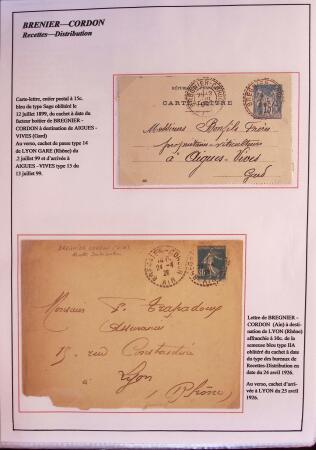 BRENIER—CORDON
Recettes—Distribution
Carte-lettre, entier postal à 15c.
bleu du type Sage oblitéré le
12 juillet 1899, du cachet à date du
facteur boîtier de BREGNIER -
CORDON à destination de AIGUES -
VIVES (Gard)
Au verso, cachet de passe type 14
de LYON GARE (Rhône) du
2 juillet 99 et d'arrivée à
AIGUES - VIVES type 15 du
13 juillet 99.
CARTE-LETTRE
Messieurs Bonfils Frères
propriétaires-viticulteurs
à Aigues-Vives
Gard
BREGNIER-CORDON (Ain)
Recette Distribution
BREGNIER-CORDON
24 -4
26
AIN
Monsieur P. Trapadoux
Assurances
15 rue Constantine
Lyon
(Rhône)
Lettre de BREGNIER -
CORDON (Ain) à desti-
nation de LYON (Rhône)
affranchie à 30c. de la
semeuse bleu type IIA
oblitéré du cachet à date
du type des bureaux de
Recettes-Distribution en
date du 24 avril 1926.
Au verso, cachet d'arri-
vée à LYON du 25 avril
1926.